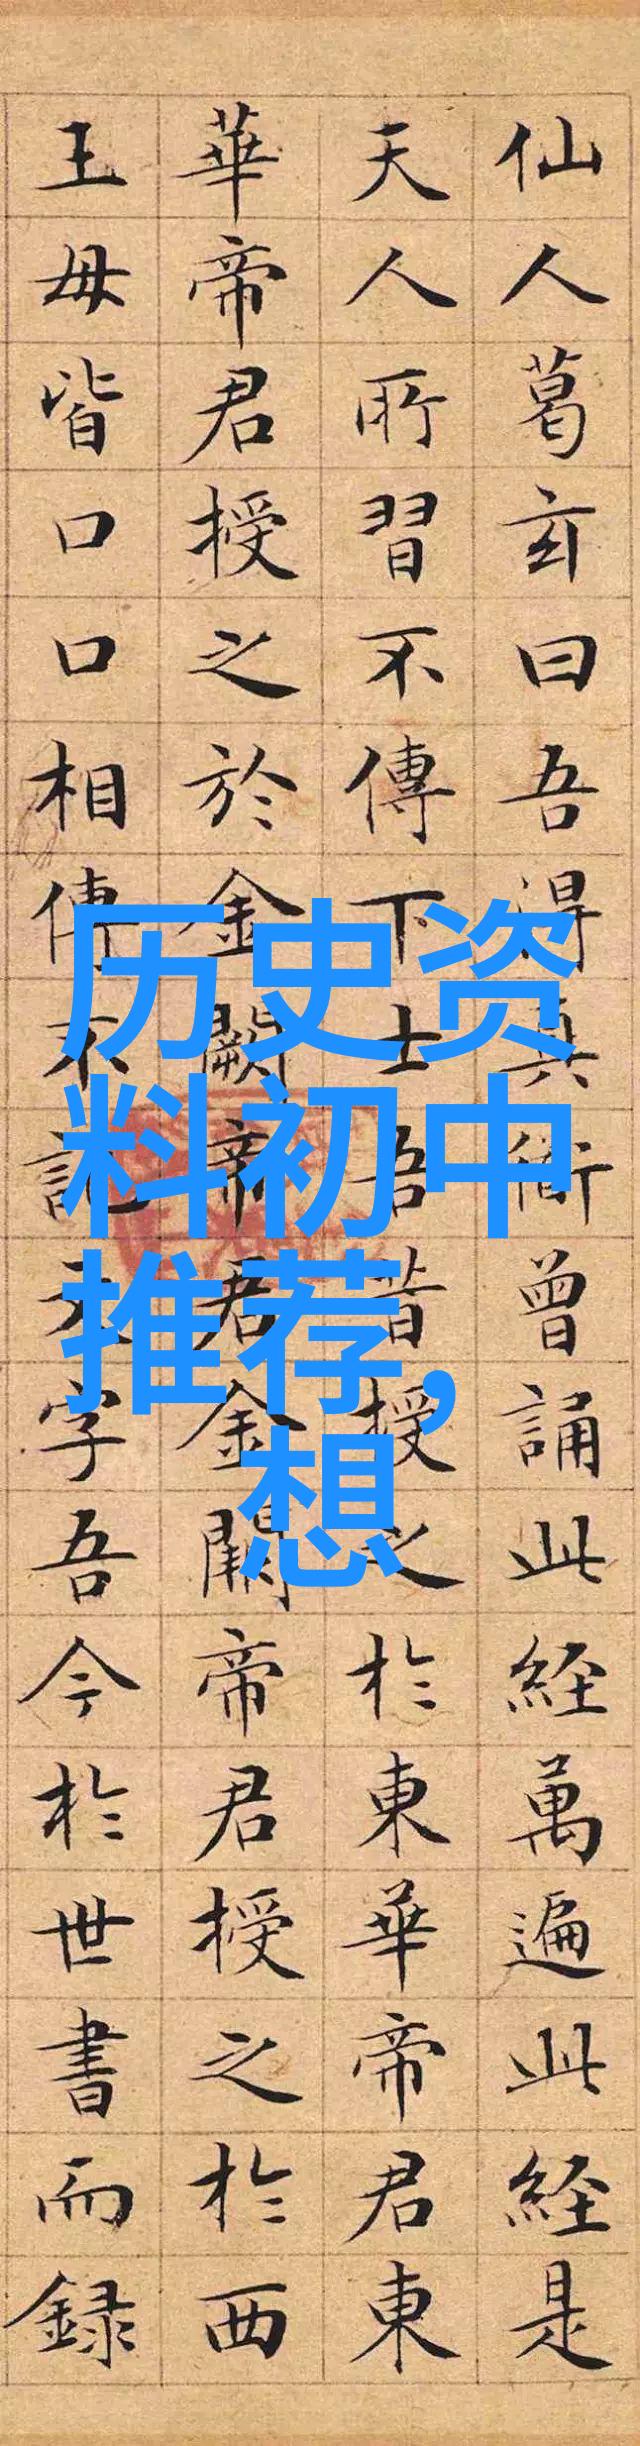 仙人葛玄曰吾得真衜曾誦此經萬遍此經是
天人所習不傳下士吾昔授之於東華帝君東
華帝君授之於金闕帝君金闕帝君授之於西
王母皆口口相傳不記文字吾今於世書而録
历史资
料初中
推荐,
想